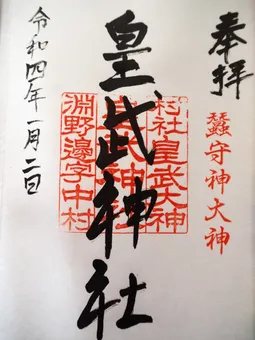 奉拝
蠶守神大神
皇武神社
村社皇武大神
淵野邊字中村
令和四年一月二日